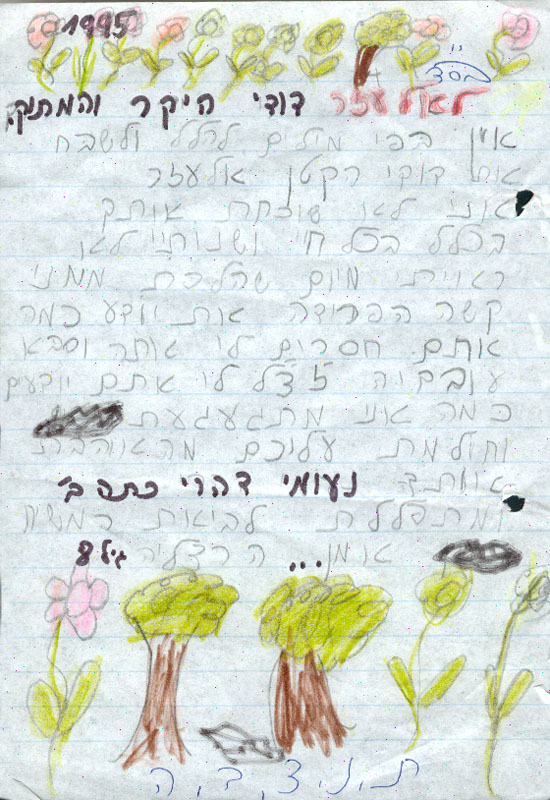 1995
בס"ד
לאלעזר דודי היקר והמתוק,
אין בפי מילים להלל ולשבח
את דודי הקטן אלעזר
אני לא שוכחת אותך
בכלל בכל חיי ושנותיי לא
ראיתי מיום שהלכת ממני
קשה הפרודה את יודע כמה
אתם חסרים לי אתה וסבא
עובדיה זצל לו אתם יודעים
כמה אני מתגעגעת
וחולמת עליכם מהאוהבת
אותך נעומי דהרי כתה ב'
ומתפללת לביאת המשיח
אמן... הרצליה גיל 8
ת.נ.צ.ב.ה